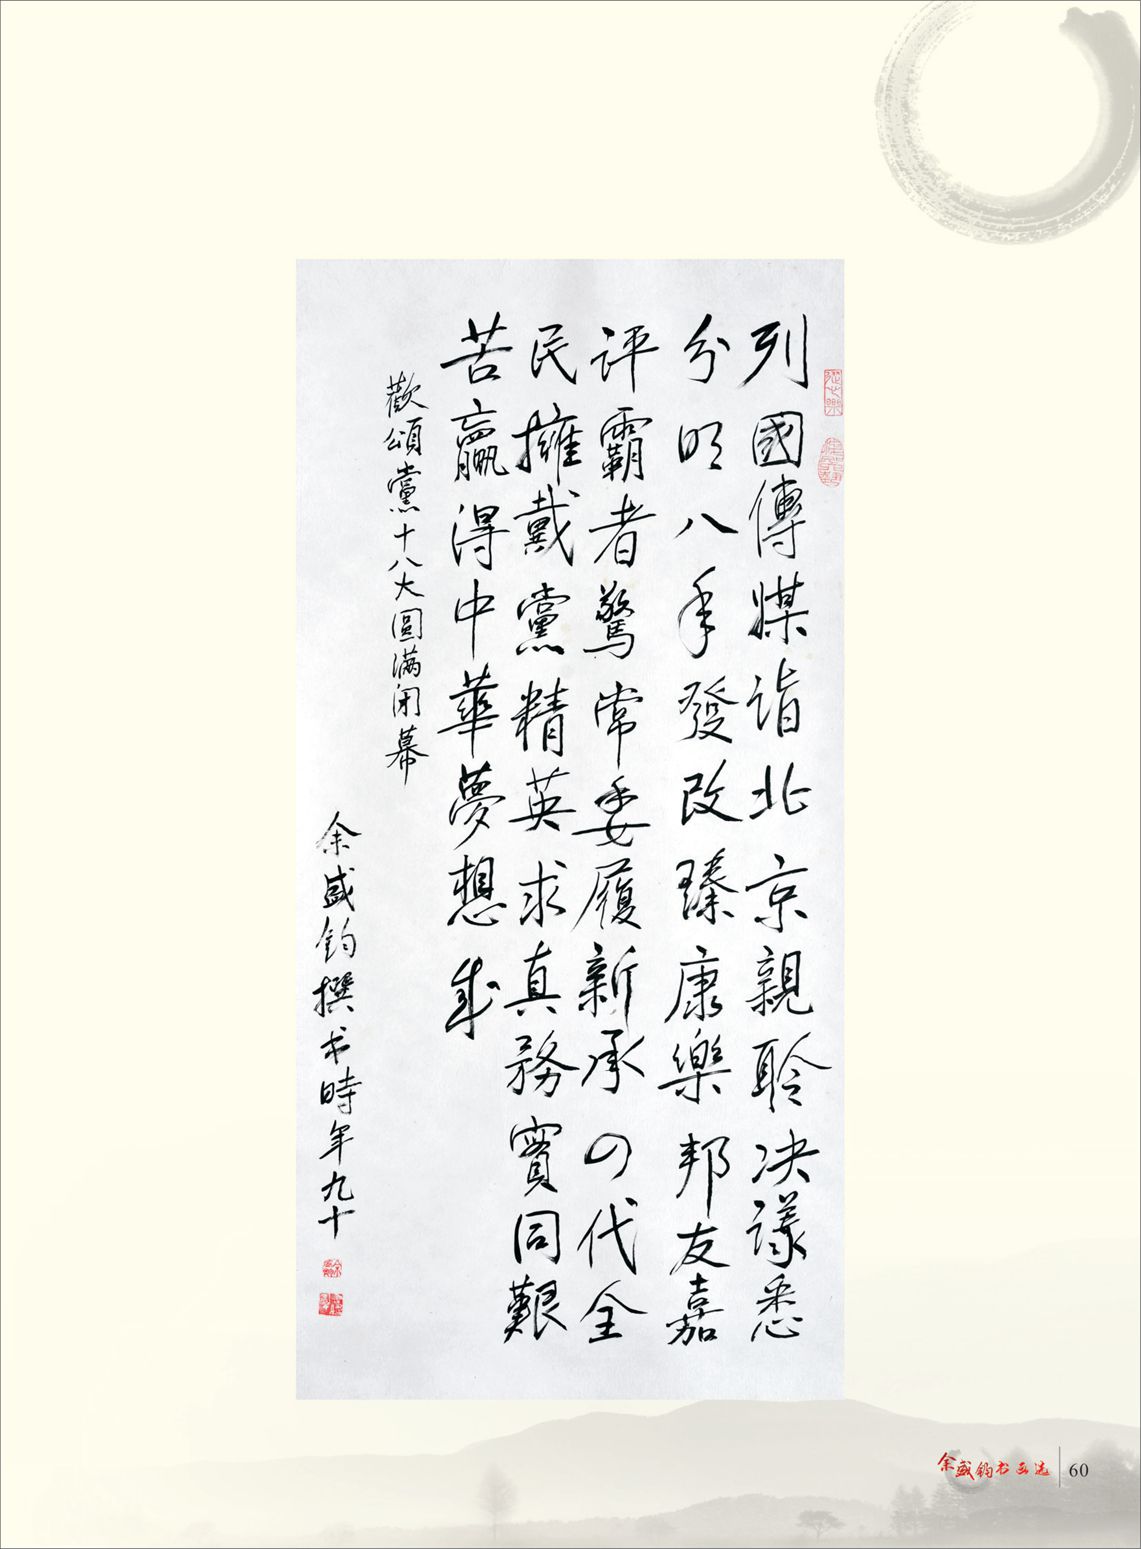 列國傳媒詣北京親聆决議悉
分明八年發改臻康樂邦友嘉
評霸者驚常委履新承の代全
民擁戴黨精英求真務實同艱
苦贏得中華夢想成
歡頌黨十八大圓满闭幕
余盛鈞撰书時年九十
余盛鈞书画选
60